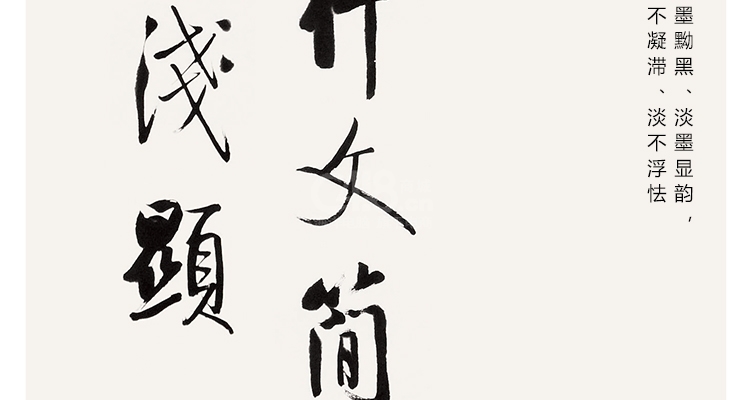 墨黝黑、淡墨显韵，
不凝滞、淡不浮怯
文简
淺顯